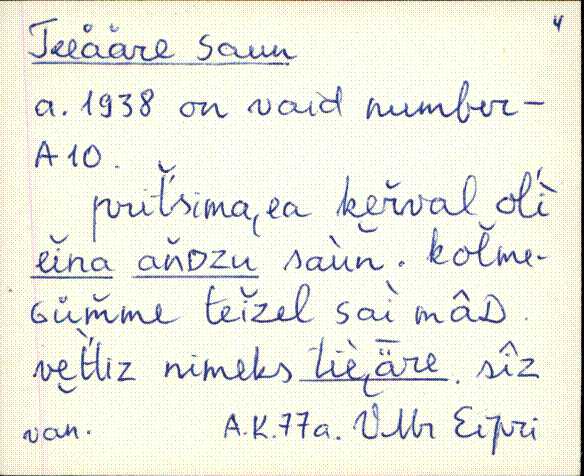 4
Teeääre saun
a. 1938 on vaid number-
A 10.
prit̆'simạ,ea ker̆val olì
eĭna an̆Dzu saùn̆. kol̆me-
Gùm̆me teĭzel saì mâD.
vet̆'liz nimeks tiè̬ǟre. sîz
van. A.K. 77a. VMr Eipri